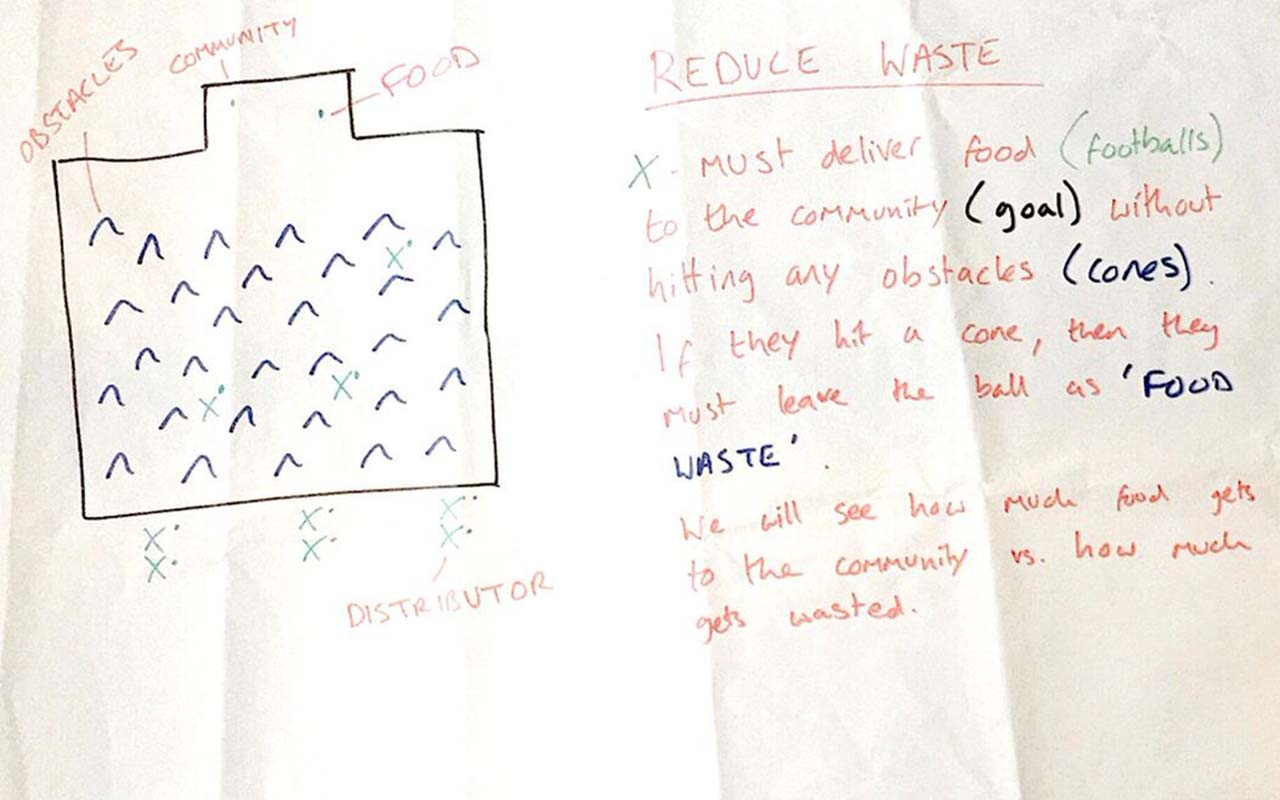 OBSTACLES
COMMUNITY
FOOD
DISTRIBUTOR
REDUCE WASTE
X - MUST deliver food (footballs)
to the community (goal) without
hitting any obstacles (cones).
If they hit a cone, then they
must leave the ball as 'FOOD
WASTE'.
We will see how much food gets
to the community vs. how much
gets wasted.